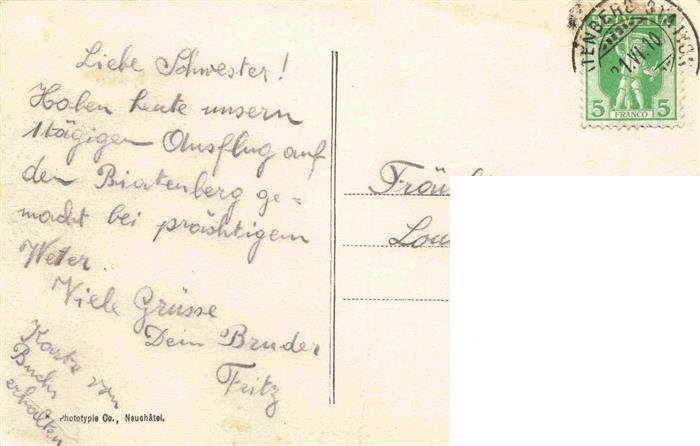 Liebe Schwester!
Haben heute unsern
1tägigen Ausflug auf
den Biatenberg ge=
macht bei prächtigem
Weter.
Viele Grüsse
Dein Bruder
Fritz
Karte von
Buchs
erhalten
Phototypie Co., Neuchâtel.
TENBERG STATION
21.VI.10
HELVETIA
5 5
FRANCO